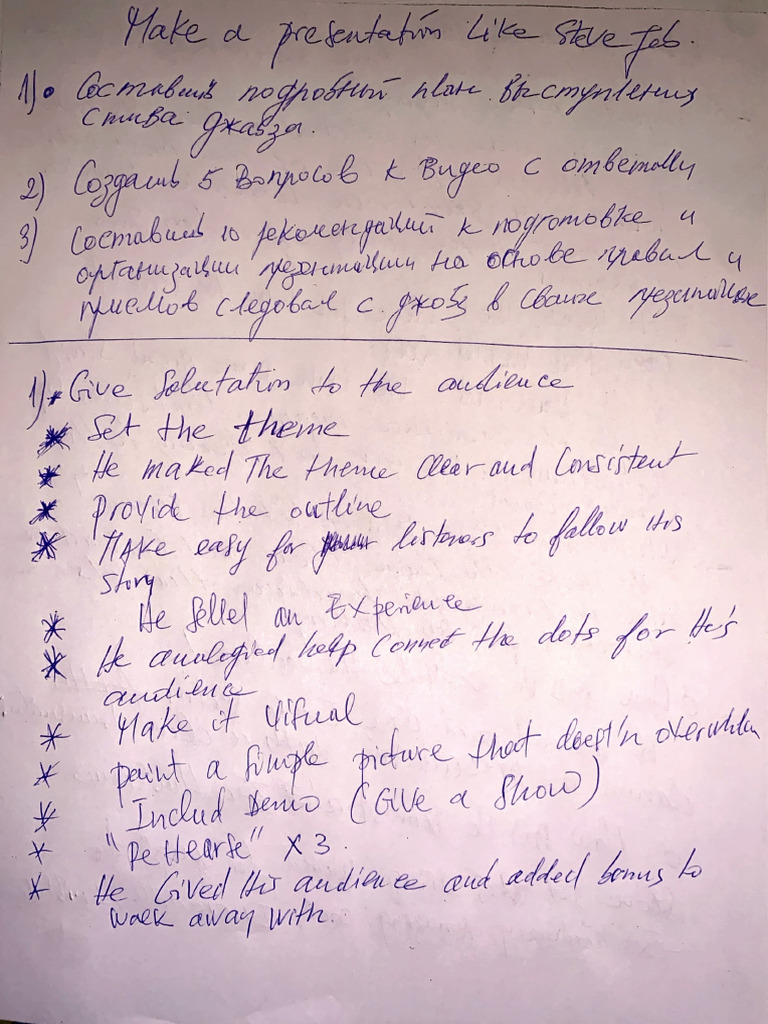 Make a presentation Like Steve Job.
1) • Составить подробный план выступления
Стива Джавза.
2) Создать 5 вопросов к видео с ответами
3) Составить 10 рекомендаций к подготовке и
организации презентации на основе правил и
приемов следовал с. джобз в своих
1) • Give Solutation to the audience
* Set the theme
* He maked The theme Clear and Consistent
* Provide the outline
* Make easy for listeners to follow His
story
* He Selled an Experience
* He analogied help Connect the dots for He's
audience
* Make it Visual
* paint a Simple picture that
* Includ Demo (GIVE a Show)
* "ReHearse" X 3.
* He Gived His audience and added bonus to
walk away with.